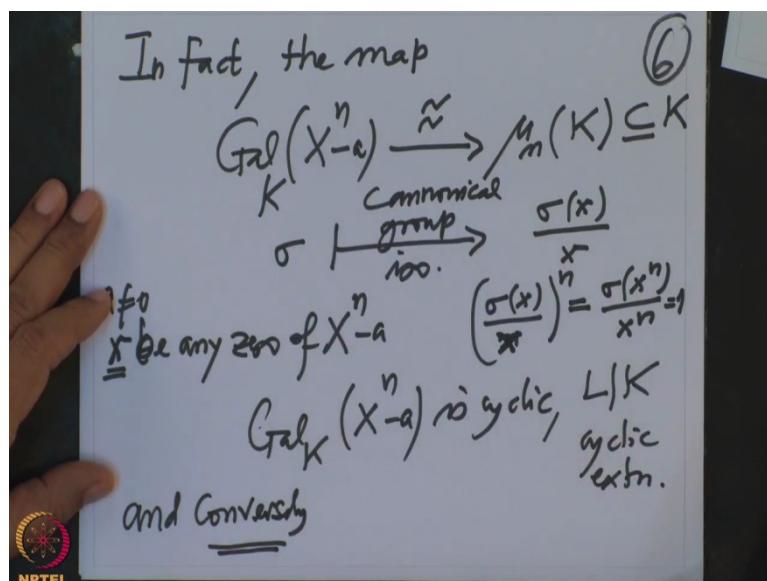 In fact, the map
6
Gal_K (X^n-a) ≈→ μ_n(K) ⊆ K
cannonical
group
iso.
σ ↦ σ(x)/x
≠0
x be any zero of X^n-a
(σ(x)/x)^n = σ(x^n)/x^n = 1
Gal_K (X^n-a) is cyclic, L|K
cyclic
extn.
and Conversly
NPTEL